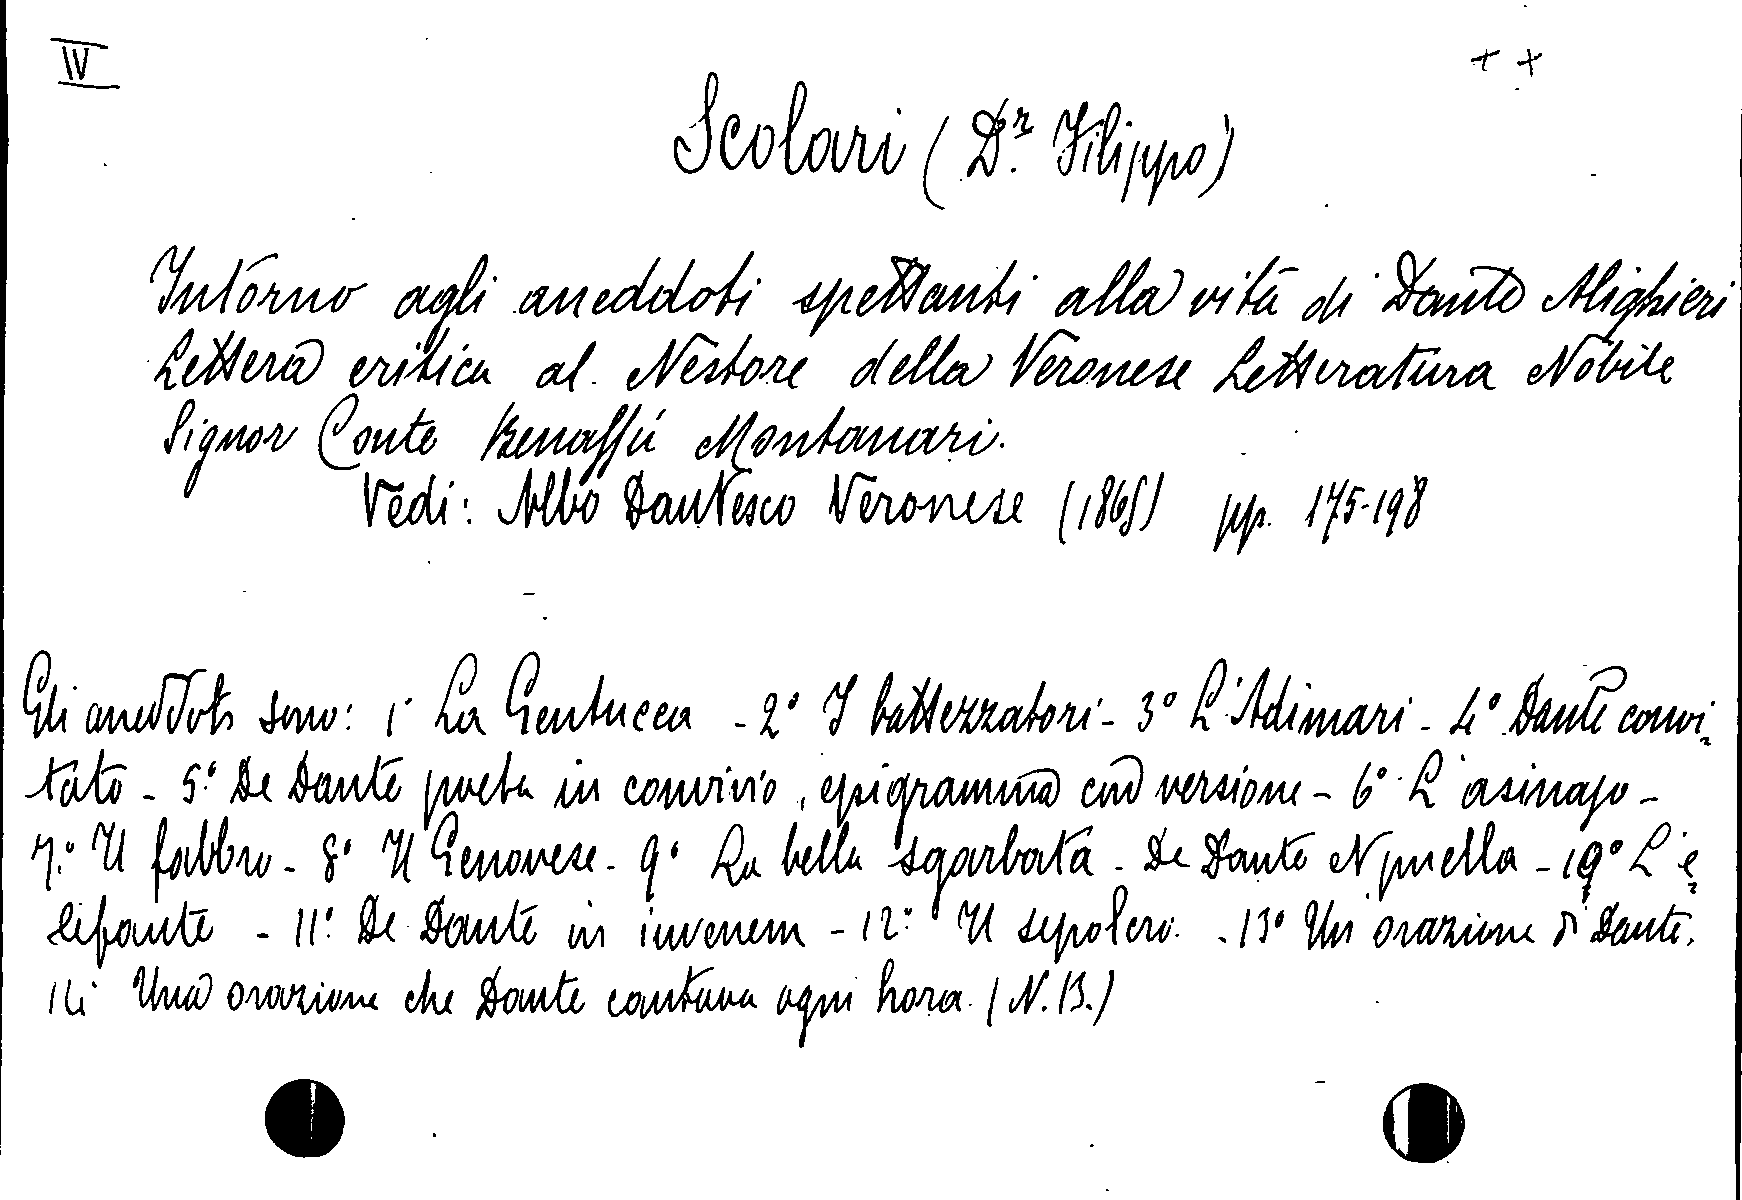 IV
+ +
Scolari (Dr. Filippo)
Intorno agli aneddoti spettanti alla vita di Dante Alighieri
Lettera critica al Nestore della Veronese Letteratura Nobile
Signor Conte Benassù Montanari.
Vedi: Albo Dantesco Veronese (1865) pp. 175-198
Gli aneddoti sono: 1° La Gentucca - 2° I battezzatori - 3° L'Adimari - 4° Dante convi-
tato - 5° De Dante poeta in convivio, epigramma con versione - 6° L'asinajo -
7° Il fabbro - 8° Il Genovese - 9° La bella sgarbata - De Dante N puella - 10° L'e-
lefante - 11° De Dante in iuvenem - 12° Il sepolcro. - 13° Un orazione di Dante.
14° Una orazione che Dante cantava ogni hora. (N. B.)